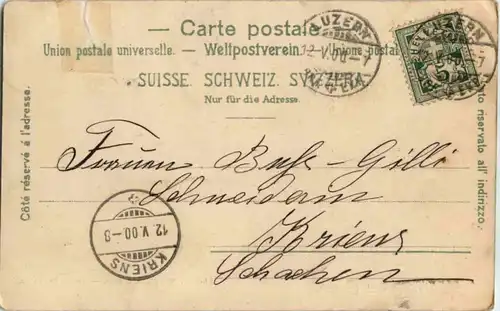 — Carte postale. —
Union postale universelle. — Weltpostverein. — Unione postale
SUISSE. SCHWEIZ. SVIZZERA.
Nur für die Adresse.
Côté réservé à l'adresse.
riservato all' indirizzo.
LUZERN
12.V.00-7
LUZERN
Frauen Buss-Gilli
Schneiderin
Kriens
Schachen
12.V.00-8
KRIENS